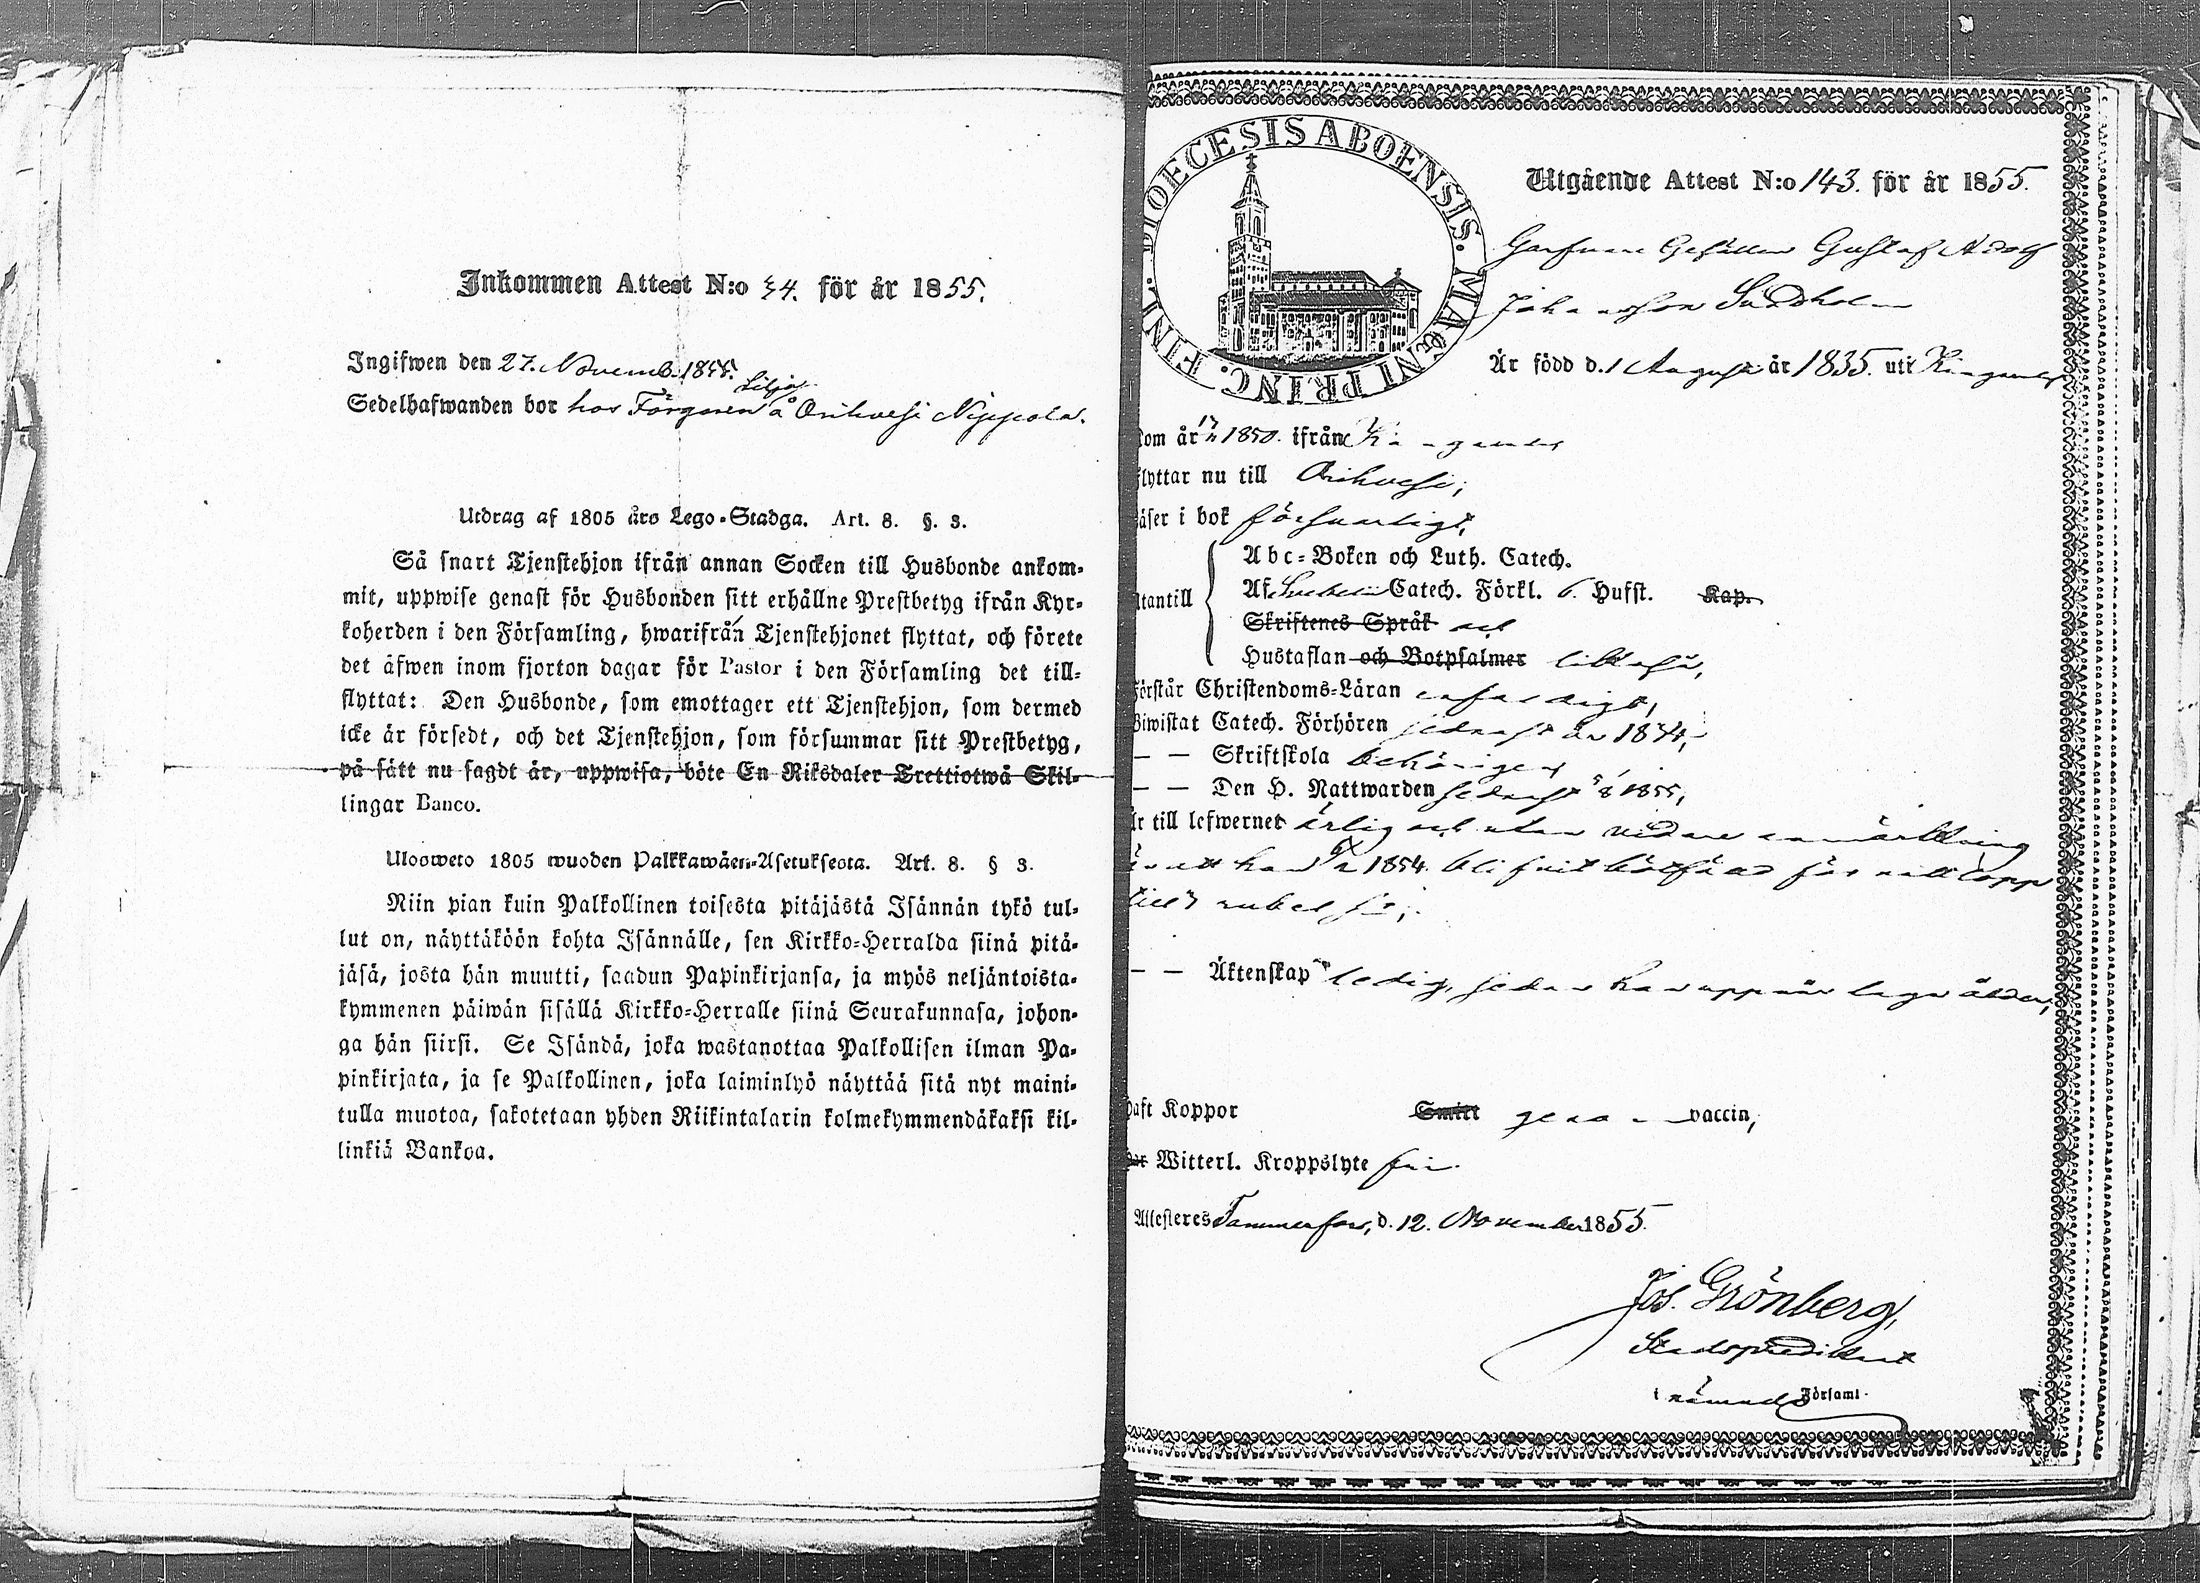 Inkommen Attest N:o 34. för år 1855.
Ingifwen den 27. Novemb. 1855.
Lilja
Sedelhafwanden bor hos Färgaren å Orihvesi Nippola.
Utdrag af 1805 års Lego-Stadga. Art. 8. §. 3.
Så snart Tjenstehjon ifrån annan Socken till Husbonde ankom-
mit, uppwise genast för Husbonden sitt erhållne Prestbetyg ifrån Kyr-
koherden i den Församling, hwarifrån Tjenstehjonet flyttat, och förete
det äfwen inom fjorton dagar för Pastor i den Församling det till-
flyttat: Den Husbonde, som emottager ett Tjenstehjon, som dermed
icke är försedt, och det Tjenstehjon, som försummar sitt Prestbetyg,
på sätt nu sagdt är, uppwisa, böte En Riksdaler Trettiotwå Skil-
lingar Banco.
Ulosweto 1805 wuoden Palkkawäen-Asetuksesta. Art. 8. § 3.
Niin pian kuin Palkollinen toisesta pitäjästä Isännän tykö tul-
lut on, näyttäköön kohta Isännälle, sen Kirkko-Herralda siinä pitä-
jäsä, josta hän muutti, saadun Papinkirjansa, ja myös neljäntoista-
kymmenen päiwän sisällä Kirkko-Herralle siinä Seurakunnasa, johon-
ga hän siirsi. Se Isändä, joka wastanottaa Palkollisen ilman Pa-
pinkirjata, ja se Palkollinen, joka laiminlyö näyttää sitä nyt maini-
tulla muotoa, sakotetaan yhden Riikintalarin kolmekymmendäkaksi kil-
linkiä Bankoa.
DIOECESIS ABOENSIS. MAGNI PRINC. FINL.
Utgående Attest N:o 143. för år 1855.
Garfvare Gesällen Gustaf Adolf
Johansson Sundholm
Är född d. 1 August år 1835. uti Kangasala
kom år 1850. ifrån Kangasala
flyttar nu till Orihvesi,
läser i bok försvarligt,
Abc-Boken och Luth. Catech.
Utantill Af Svebelii Catech. Förkl. 6. Hufst. Kap.
Skriftenes Språk och
Hustaflan och Botpsalmer likaså,
Förstår Christendoms-Läran enfaldigt,
Biwistat Catech. Förhören sednast år 1854,
— — Skriftskola behörigen
— — Den H. Nattwarden sednast 5/8 1855,
Är till lefwernet ärlig och utan vidare anmärkning
än att han 1854. blifvit bötfäld för
rubel
— — Äktenskap ledig, sedan han uppnår laga ålder,
haft Koppor Smitt genom vaccin,
Har Witterl. Kroppslyte fri.
Attesteres Tammerfors, d. 12. November 1855.
Jos. Grönberg,
Stadspredikant
i nämnde Församl.